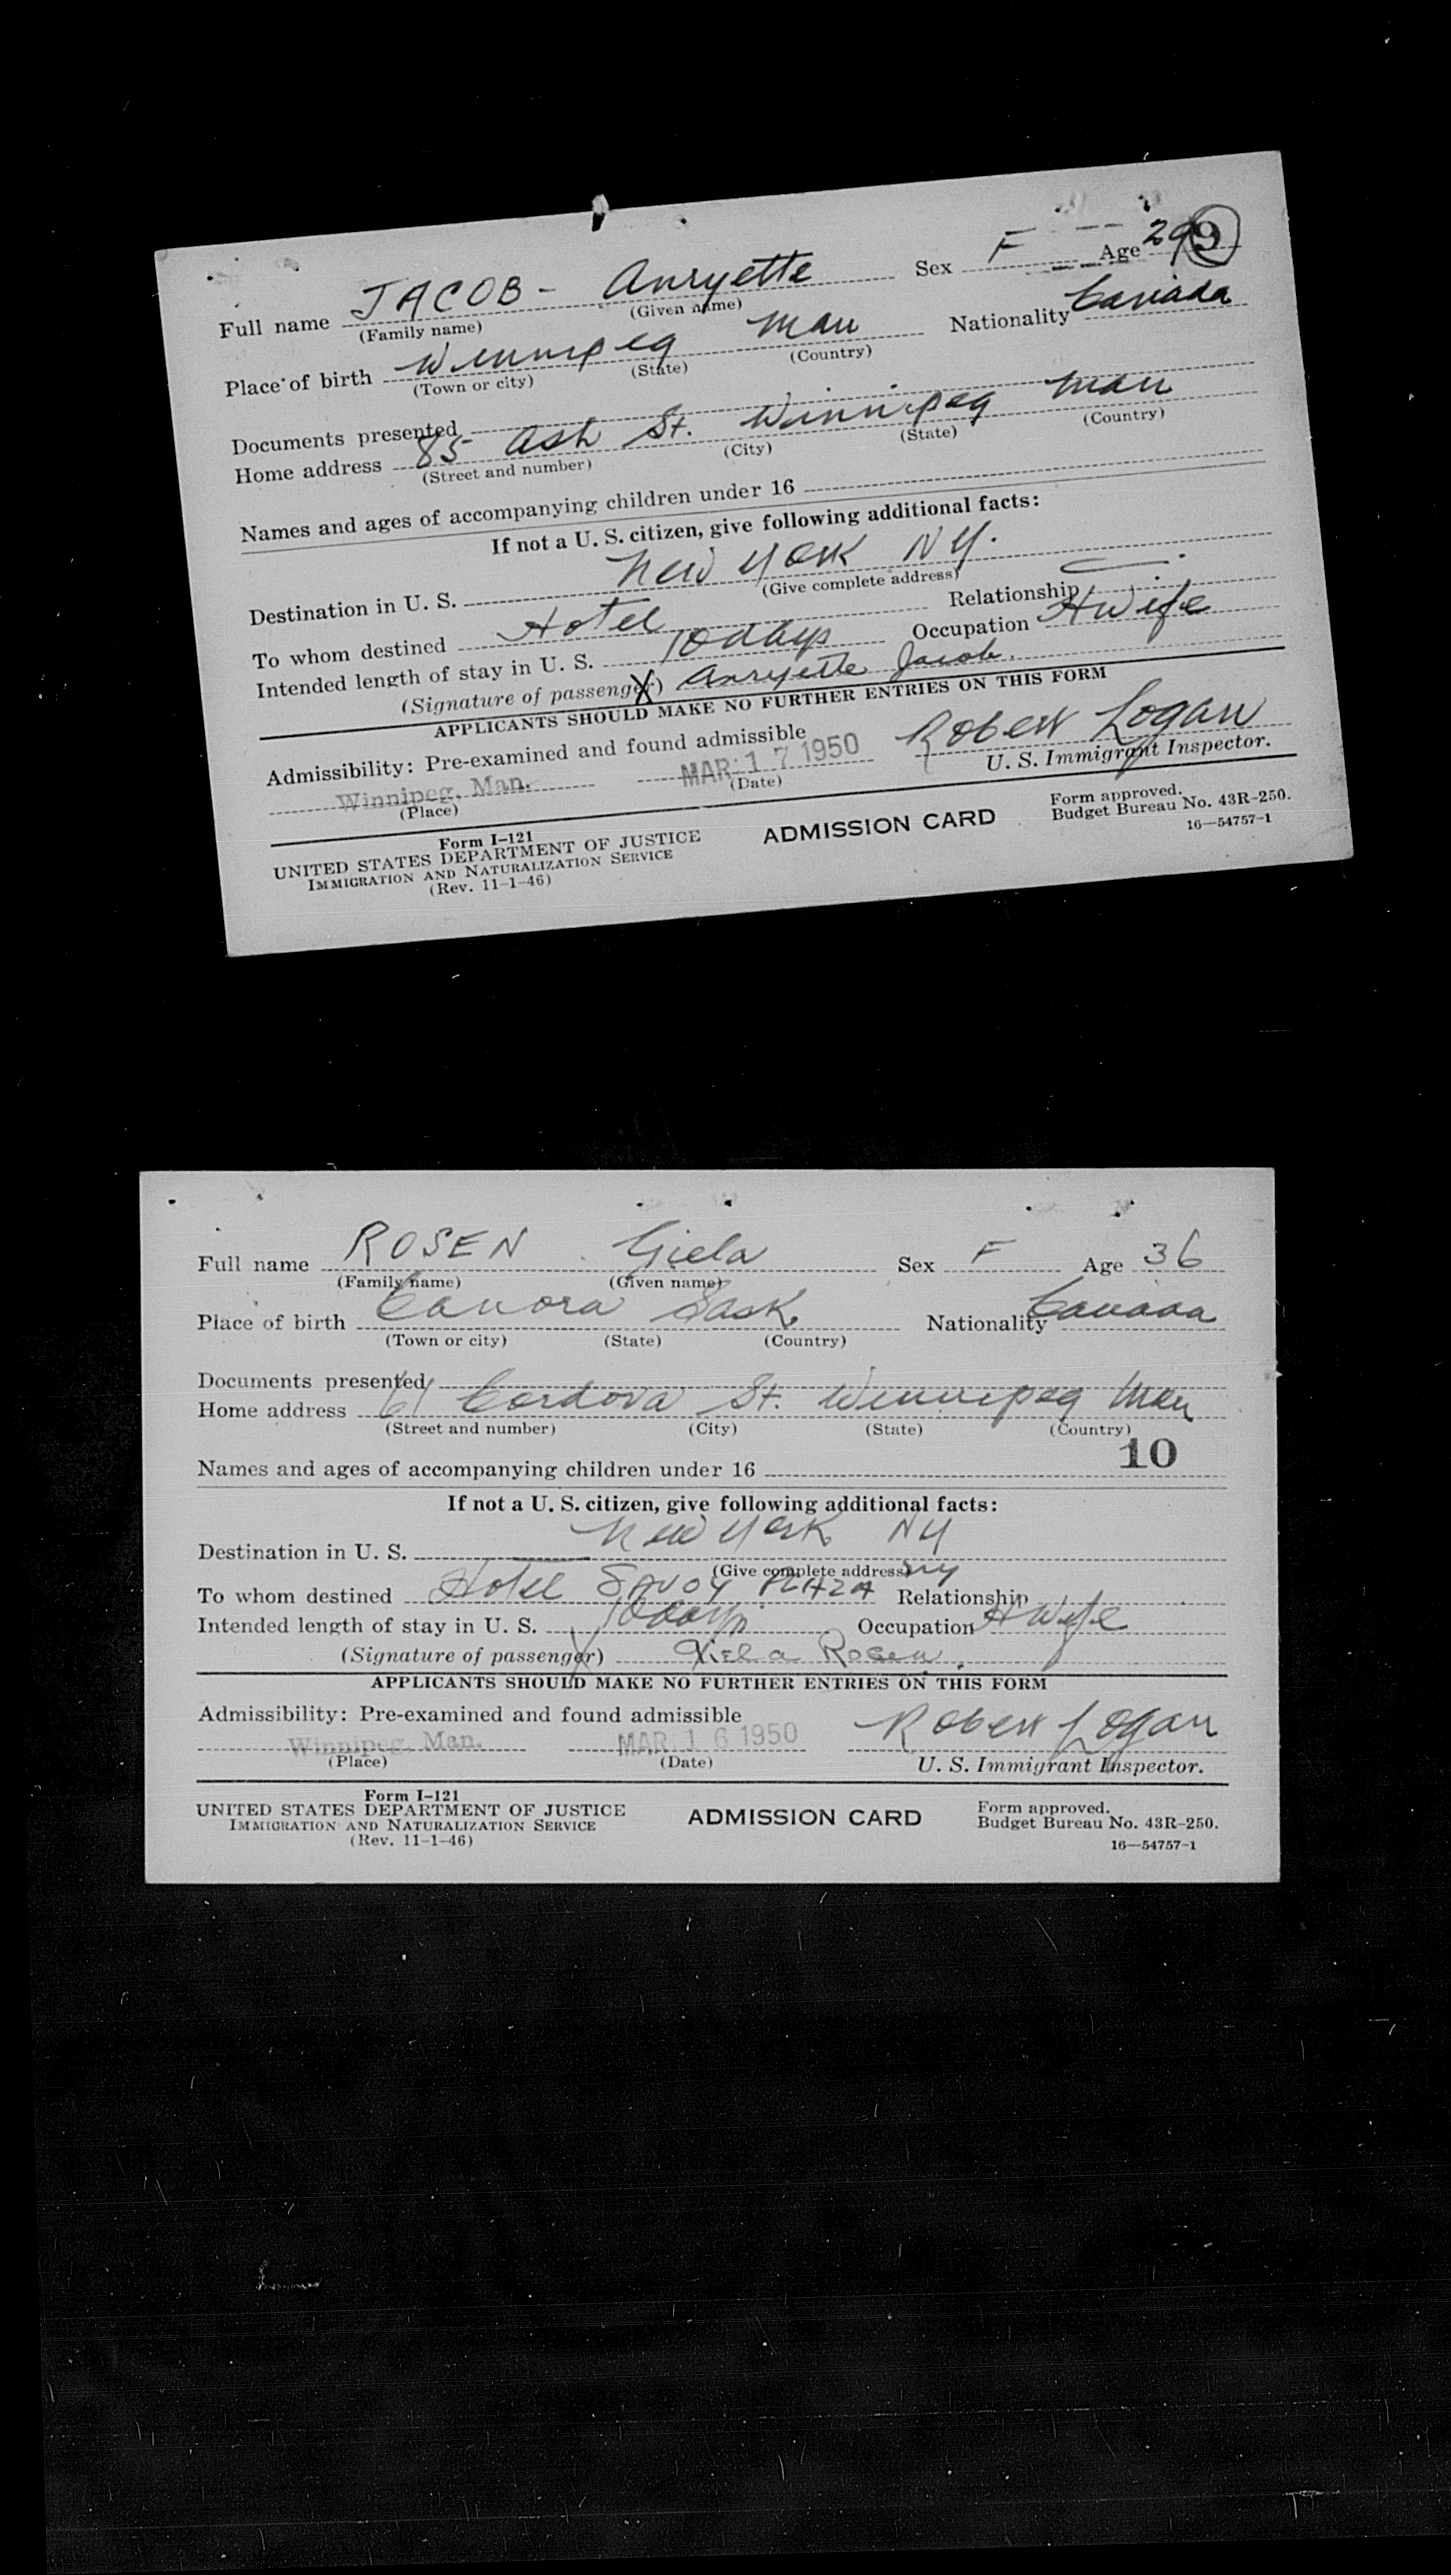 Full name JACOB - Anryette Sex F Age 29 9
(Family name) (Given name)
Place of birth Winnipeg Man Nationality Canada
(Town or city) (State) (Country)
Documents presented
Home address 85 Ash St. Winnipeg Man
(Street and number) (City) (State) (Country)
Names and ages of accompanying children under 16
If not a U. S. citizen, give following additional facts:
Destination in U. S. New York NY.
(Give complete address)
To whom destined Hotel Relationship
Intended length of stay in U. S. 10 days Occupation HWife
(Signature of passenger) X Anryette Jacob.
APPLICANTS SHOULD MAKE NO FURTHER ENTRIES ON THIS FORM
Admissibility: Pre-examined and found admissible
Winnipeg, Man. MAR 17 1950 Robert Logan
(Place) (Date) U. S. Immigrant Inspector.
Form I-121
UNITED STATES DEPARTMENT OF JUSTICE
IMMIGRATION AND NATURALIZATION SERVICE
(Rev. 11-1-46)
ADMISSION CARD
Form approved.
Budget Bureau No. 43R-250.
16—54757-1
Full name ROSEN Giela Sex F Age 36
(Family name) (Given name)
Place of birth Canora Sask. Nationality Canada
(Town or city) (State) (Country)
Documents presented
Home address 61 Cordova St. Winnipeg Man
(Street and number) (City) (State) (Country)
10
Names and ages of accompanying children under 16
If not a U. S. citizen, give following additional facts:
Destination in U. S. New York NY
(Give complete address) NY
To whom destined Hotel SAVOY PLAZA Relationship
Intended length of stay in U. S. 10 days Occupation HWife
(Signature of passenger) X Giela Rosen.
APPLICANTS SHOULD MAKE NO FURTHER ENTRIES ON THIS FORM
Admissibility: Pre-examined and found admissible
Winnipeg, Man. MAR 16 1950 Robert Logan
(Place) (Date) U. S. Immigrant Inspector.
Form I-121
UNITED STATES DEPARTMENT OF JUSTICE
IMMIGRATION AND NATURALIZATION SERVICE
(Rev. 11-1-46)
ADMISSION CARD
Form approved.
Budget Bureau No. 43R-250.
16—54757-1